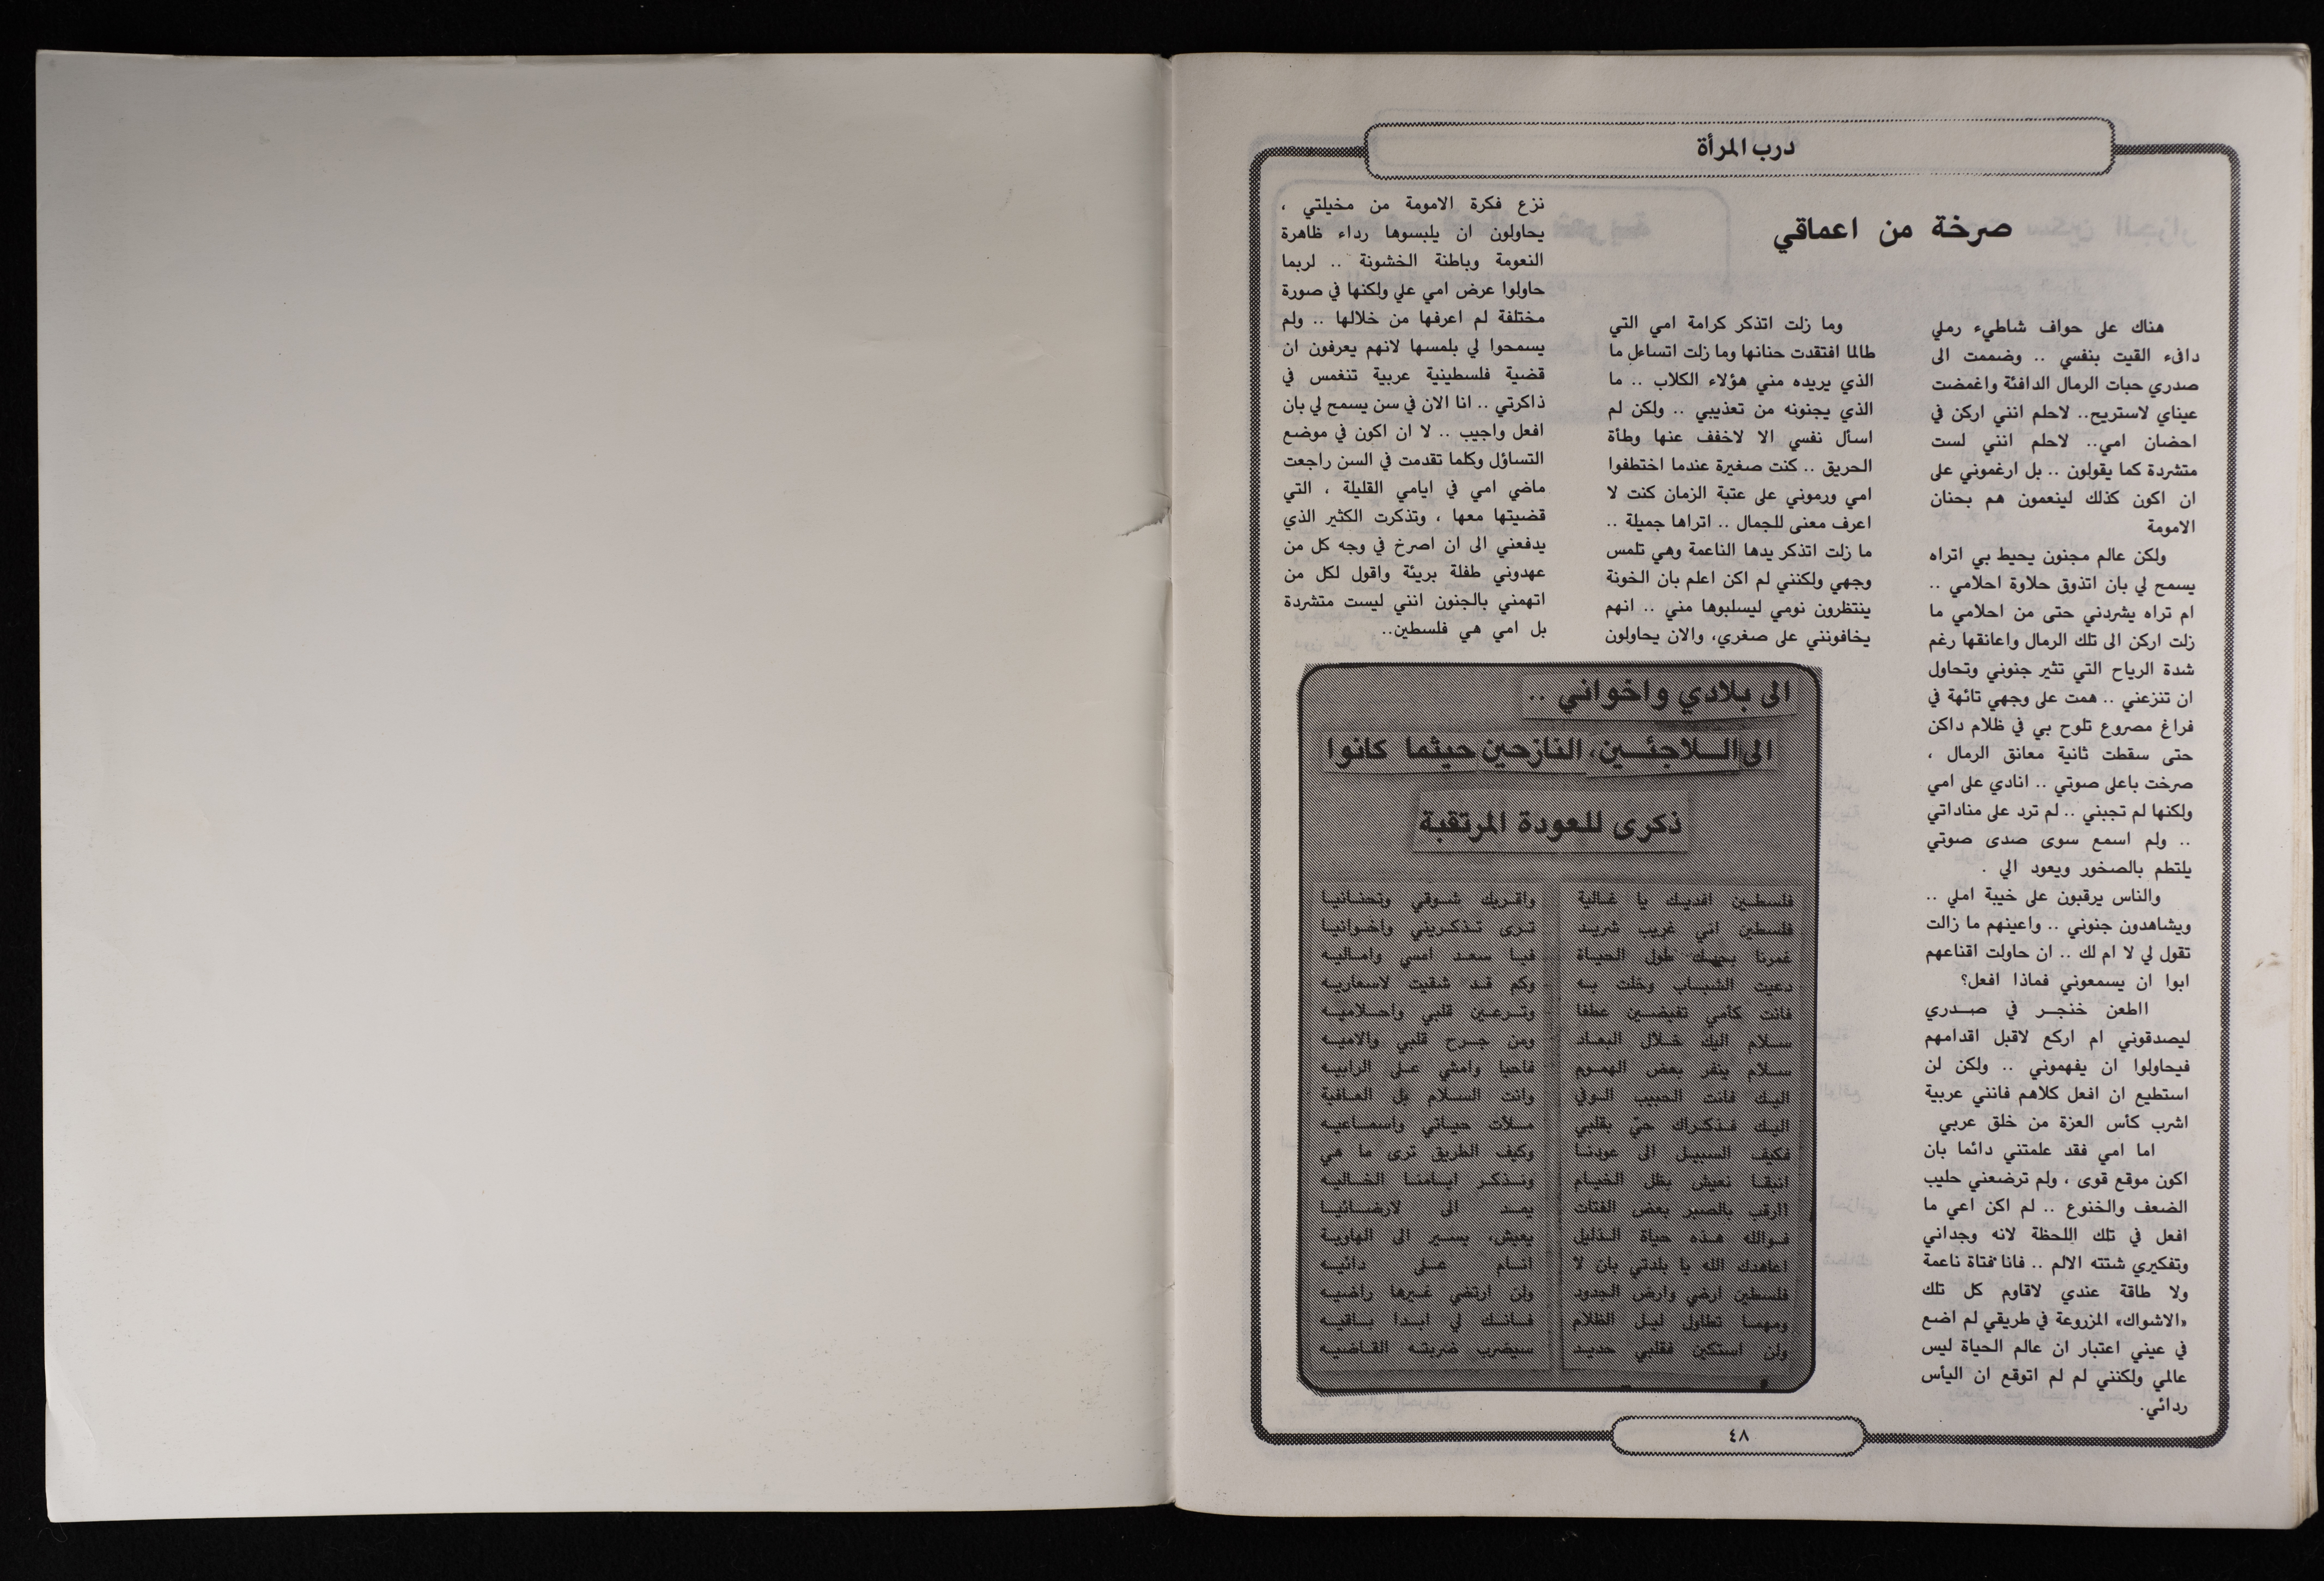 درب المرأة
صرخة من اعماقي
هناك على حواف شاطيء رملي
دافء القيت بنفسي .. وضممت الى
صدري حبات الرمال الدافئة واغمضت
عيناي لاستريح.. لاحلم انني اركن في
احضان امي.. لاحلم انني لست
متشردة كما يقولون .. بل ارغموني على
ان اكون كذلك لينعمون هم بحنان
الامومة
ولكن عالم مجنون يحيط بي اتراه
يسمح لي بان اتذوق حلاوة احلامي ..
ام تراه يشردني حتى من احلامي ما
زلت اركن الى تلك الرمال واعانقها رغم
شدة الرياح التي تثير جنوني وتحاول
ان تنزعني .. همت على وجهي تائهة في
فراغ مصروع تلوح بي في ظلام داكن
حتى سقطت ثانية معانق الرمال ،
صرخت باعلى صوتي .. انادي على امي
ولكنها لم تجبني .. لم ترد على مناداتي
.. ولم اسمع سوى صدى صوتي
يلتطم بالصخور ويعود الي .
والناس يرقبون على خيبة املي ..
ويشاهدون جنوني .. واعينهم ما زالت
تقول لي لا ام لك .. ان حاولت اقناعهم
ابوا ان يسمعوني فماذا افعل؟
ااطعن خنجر في صدري
ليصدقوني ام اركع لاقبل اقدامهم
فيحاولوا ان يفهموني .. ولكن لن
استطيع ان افعل كلاهم فانني عربية
اشرب كأس العزة من خلق عربي
اما امي فقد علمتني دائما بان
اكون موقع قوى ، ولم ترضعني حليب
الضعف والخنوع .. لم اكن اعي ما
افعل في تلك اللحظة لانه وجداني
وتفكيري شتته الالم .. فانا فتاة ناعمة
ولا طاقة عندي لاقاوم كل تلك
«الاشواك» المزروعة في طريقي لم اضع
في عيني اعتبار ان عالم الحياة ليس
عالمي ولكنني لم لم اتوقع ان اليأس
ردائي.
وما زلت اتذكر كرامة امي التي
طالما افتقدت حنانها وما زلت اتساءل ما
الذي يريده مني هؤلاء الكلاب .. ما
الذي يجنونه من تعذيبي .. ولكن لم
اسأل نفسي الا لاخفف عنها وطأة
الحريق .. كنت صغيرة عندما اختطفوا
امي ورموني على عتبة الزمان كنت لا
اعرف معنى للجمال .. اتراها جميلة ..
ما زلت اتذكر يدها الناعمة وهي تلمس
وجهي ولكنني لم اكن اعلم بان الخونة
ينتظرون نومي ليسلبوها مني .. انهم
يخافونني على صغري، والان يحاولون
نزع فكرة الامومة من مخيلتي ،
يحاولون ان يلبسوها رداء ظاهرة
النعومة وباطنة الخشونة .. لربما
حاولوا عرض امي علي ولكنها في صورة
مختلفة لم اعرفها من خلالها .. ولم
يسمحوا لي بلمسها لانهم يعرفون ان
قضية فلسطينية عربية تنغمس في
ذاكرتي .. انا الان في سن يسمح لي بان
افعل واجيب .. لا ان اكون في موضع
التساؤل وكلما تقدمت في السن راجعت
ماضي امي في ايامي القليلة ، التي
قضيتها معها ، وتذكرت الكثير الذي
يدفعني الى ان اصرخ في وجه كل من
عهدوني طفلة بريئة واقول لكل من
اتهمني بالجنون انني ليست متشردة
بل امي هي فلسطين..
الى بلادي واخواني ..
الى اللاجئين، النازحين حيثما كانوا
ذكرى للعودة المرتقبة
فلسطين افديك يا غالية واقريك شوقي وتحنانيا
فلسطين اني غريب شريد ترى تذكريني واخوانيا
غمرنا بجهك طول الحياة فيا سعد امسي واماليه
دعيت الشباب وخلت به وكم قد شقيت لاسعاريه
فانت كأمي تفيضين عطفا وترعين قلبي واحلاميه
سلام اليك خلال البعاد ومن جرح قلبي والاميه
سلام ينفر بعض الهموم فاحيا وامشي على الرابيه
اليك فانت الحبيب الوفي وانت السلام بل العافية
اليك فذكراك حي بقلبي ملأت حياتي واسماعيه
فكيف السبيل الى عودنا وكيف الطريق ترى ما هي
انبقا نعيش بظل الخيام ونذكر ايامنا الخاليه
اارقب بالصبر بعض الفتات يمد الى لارضائيا
فوالله هذه حياة الذليل يعيش، يسير الى الهاوية
اعاهدك الله يا بلدتي بان لا انام على دائيه
فلسطين ارضي وارض الجدود ولن ارتضي غيرها راضيه
ومهما تطاول ليل الظلام فانك لي ابدا باقيه
ولن استكين فقلبي حديد سيضرب ضربته القاضيه
٤٨